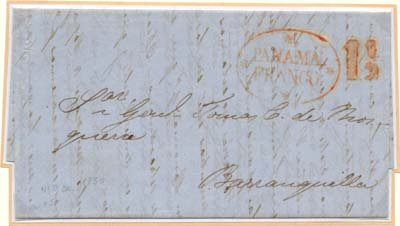 PANAMA
FRANCO
1½
Sor
Genl. Tomas C. de Mos-
quera
Barranquilla